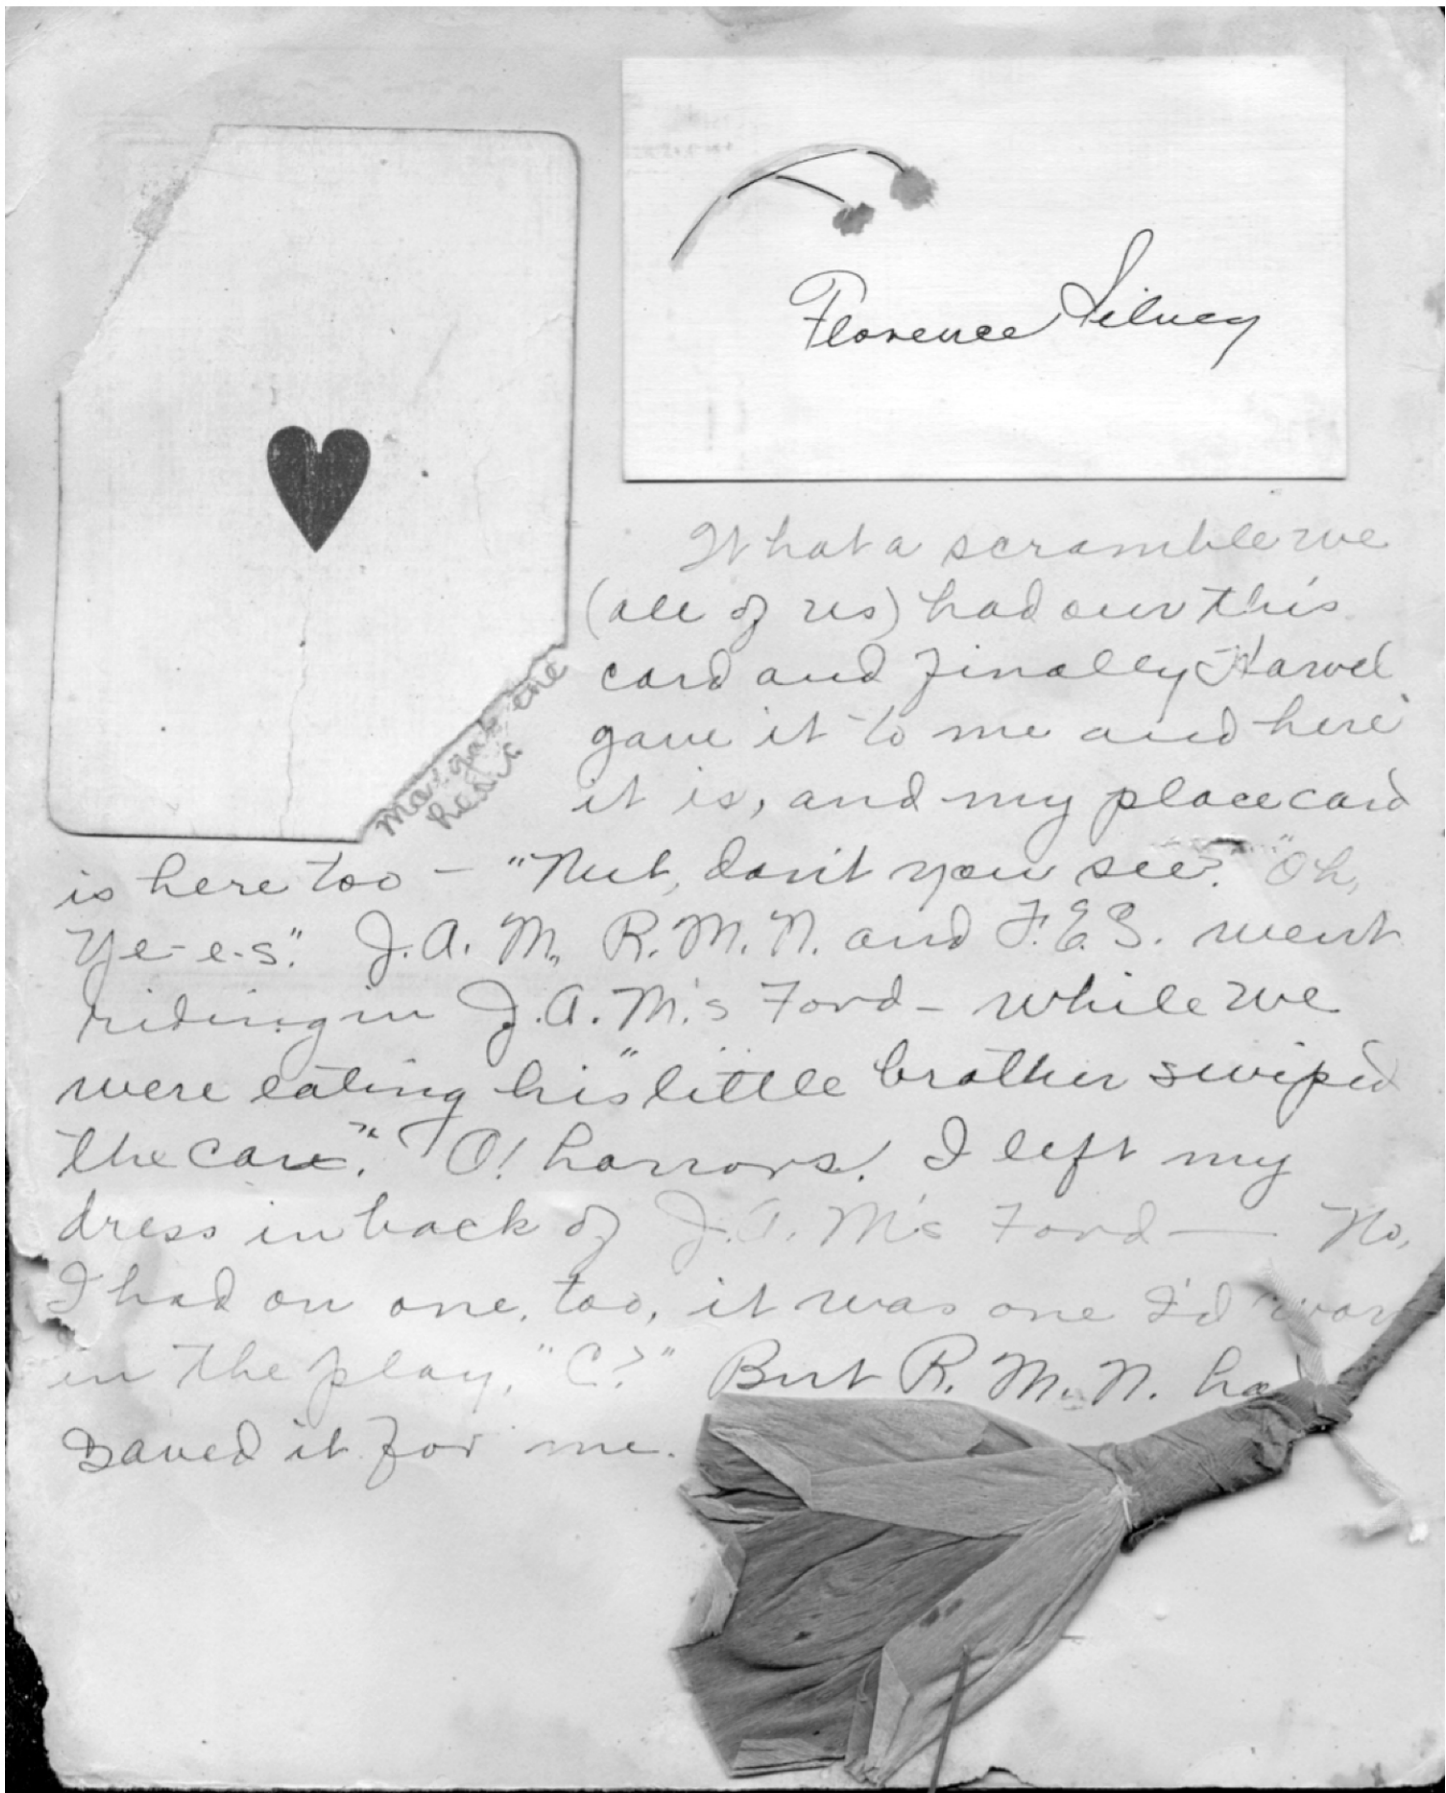 Florence Silvey
What a scramble we
(all of us) had over this
card and finally Harvel
gave it to me and here
it is, and my placecard
Margat one
hesic
is here too – "Nut, don't you see?" "Oh,
Ye-e-s." J.A.M., R.M.N. and F.E.S. went
riding in J.A.M.'s Ford – while we
were eating his "little brother swiped
the car." O! horrors! I left my
dress in back of J.A.M's Ford — No,
I had on one, too, it was one I'd wor
in the play, "C?" But R.M.N. ha
saved it for me.